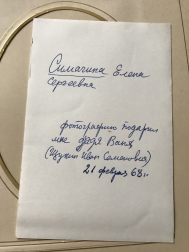 Симагина Елена
Сергеевна
фотографию подарил
мне дядя Ваня
(Щукин Иван Семёнович)
21 февраля 68 г